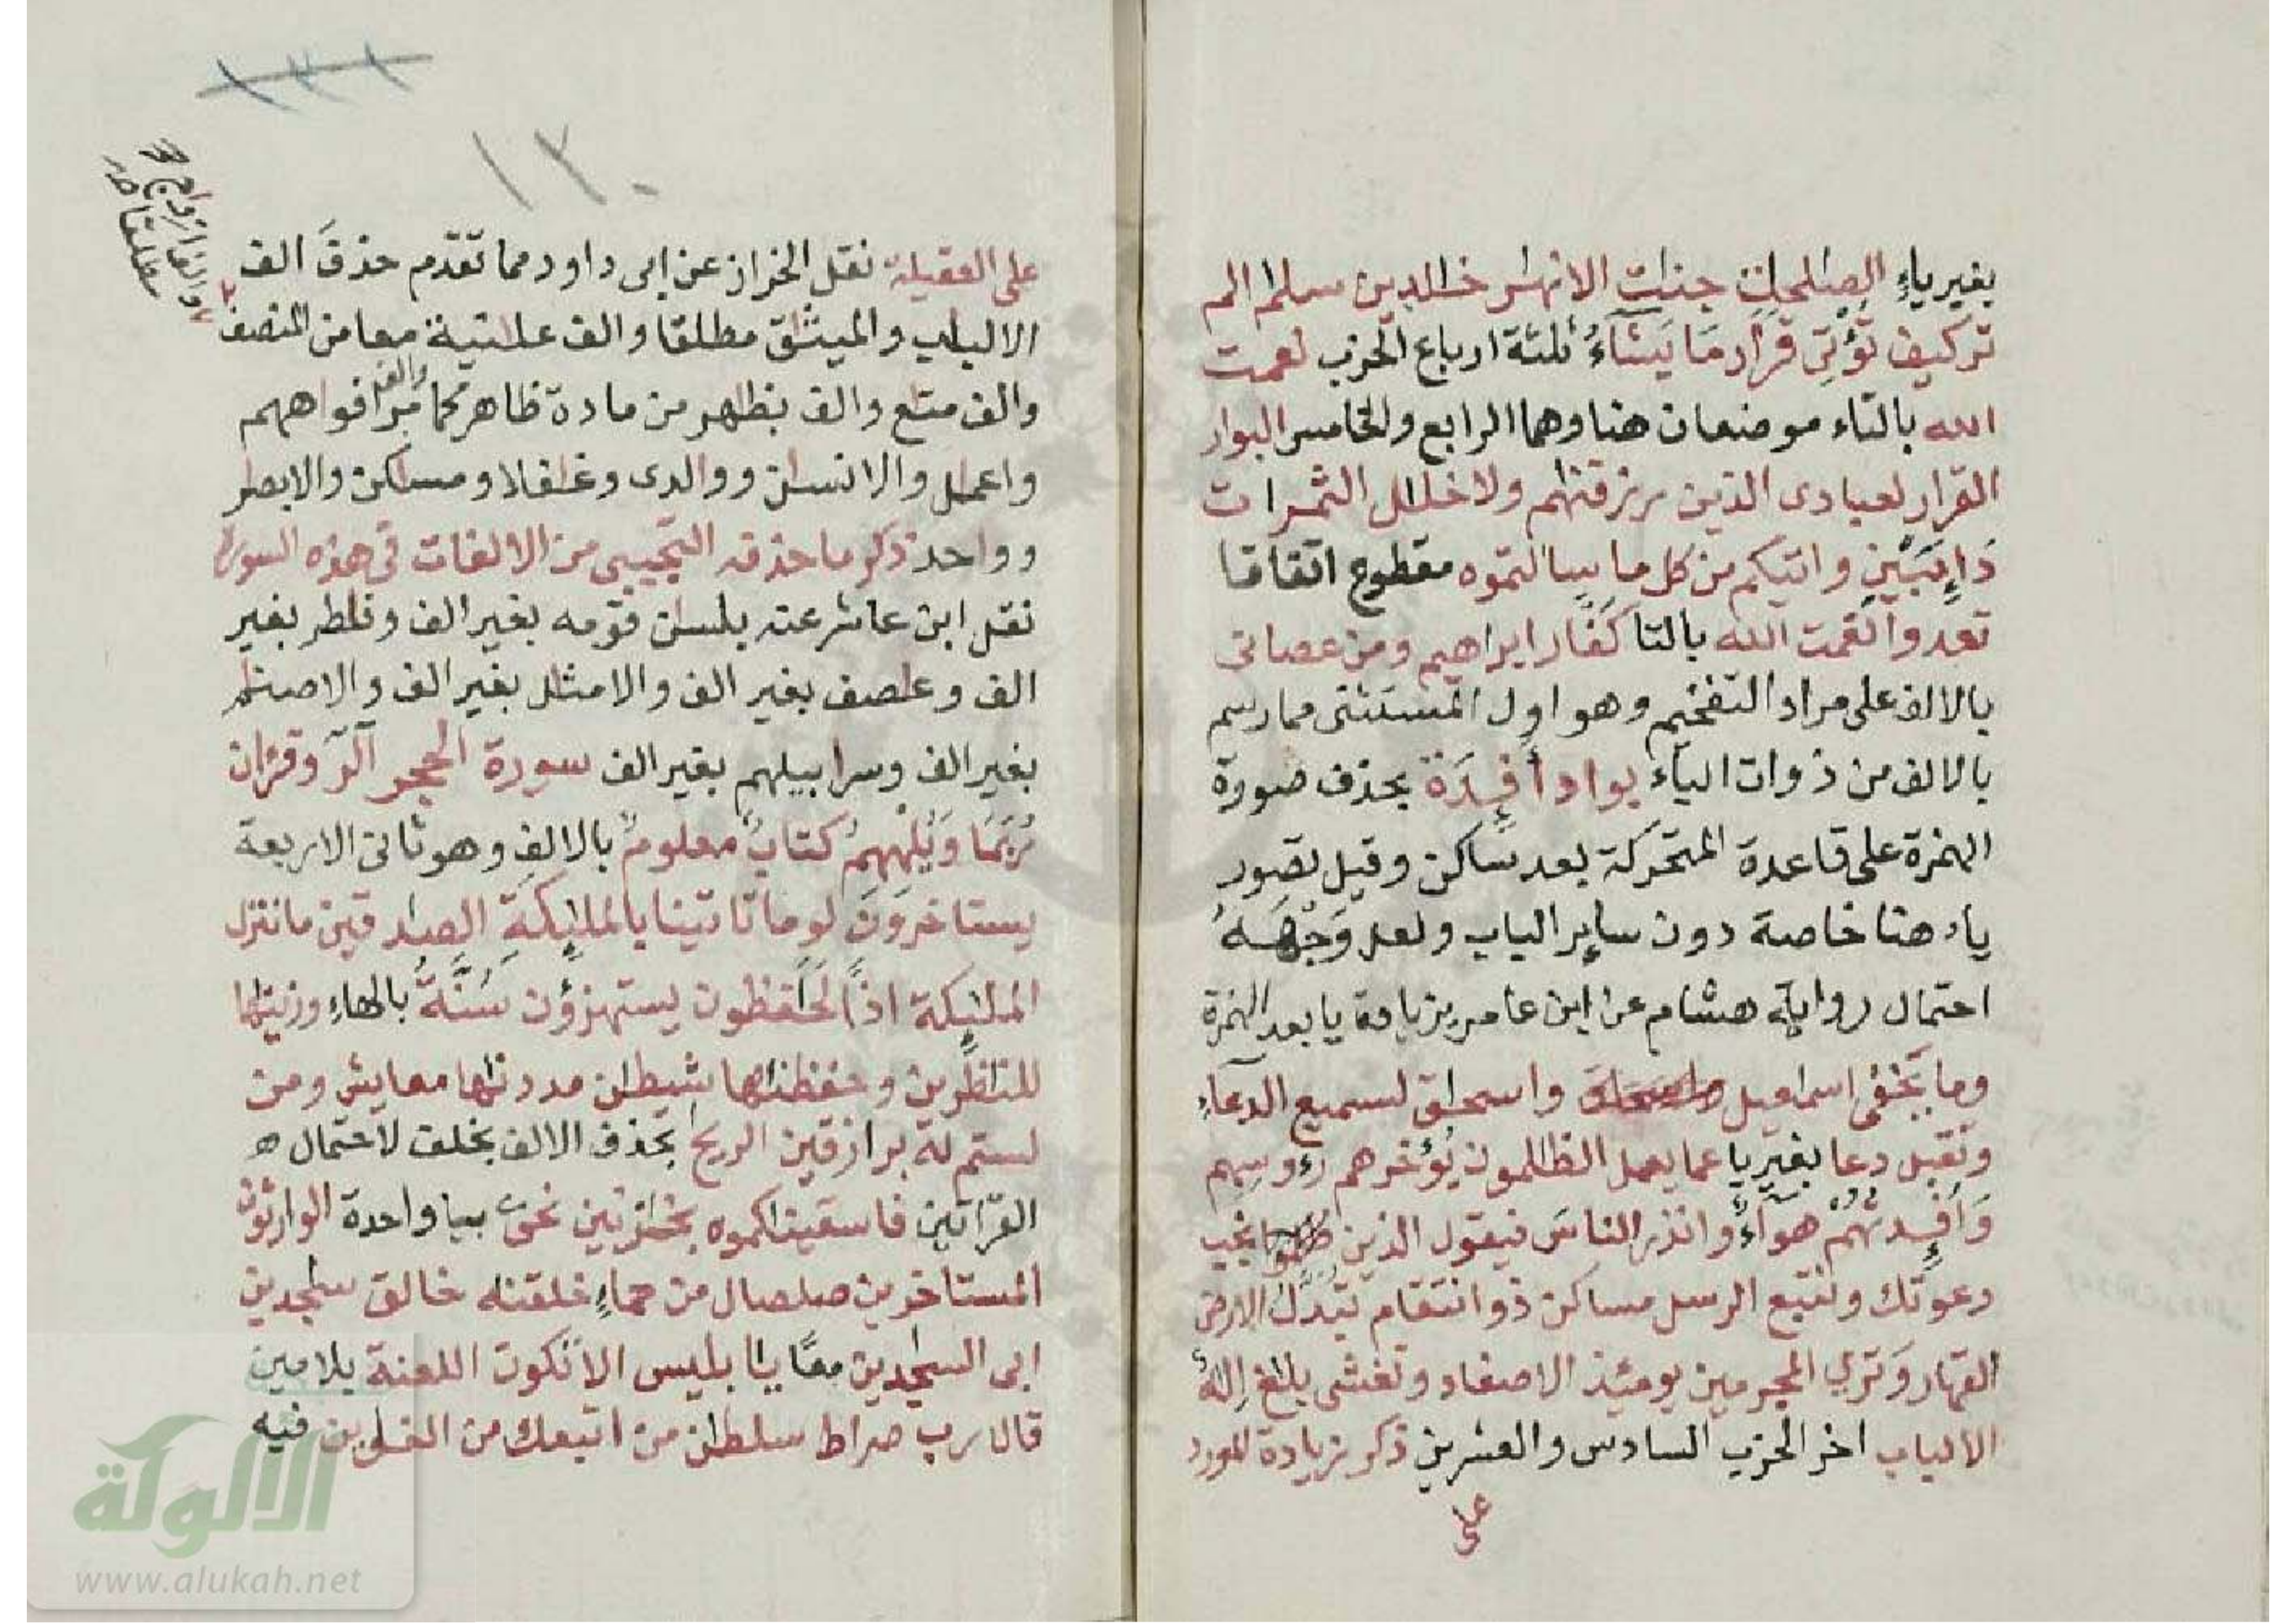 بغير ياءٍ الصٰلحٰت جنٰت الانهٰر خٰلدين سلٰم الم
تر كيف تؤتى قرار ما يَشَآءُ ثلثة ارباع الحزب نعمت
الله بالتاء موضعان هنا وهما الرابع والخامس البوار
القرار لعبادى الذين رزقنٰهم ولا خلٰل الثمرات
دَآئِبَيْنِ واتيكم من كل ما سالتموه مقطوع اتفاقا
تعدوا نعمت الله بالتا كَفَّار ابراهيم ومن عصانى
بالالف على مراد التفخيم وهو اول المستثنى مما رسم
بالالف من ذوات الياء بواد أفـِٕدَة بحذف صورة
الهمزة على قاعدة المتحركة بعد ساكن وقيل بصور
ياء هنا خاصة دون ساير الباب ولعل وَجْهَهُ
احتمال رواية هشام عن ابن عامر بزيادة يا بعد الهمزة
وما يَخْفٰى اسمٰعيل واسحٰق لسميع الدعآءِ
وتقبل دعا بغير يا عما يعمل الظٰلمون يُؤخرهم رءُوسِهم
وَأَفـِٕدتُهُمْ هوآءٌ وانذر الناسَ فيقول الذين ظلموا نجب
دعوتك ونتبع الرسل مساكن ذو انتقام تُبَدَّلُ الارض
القهار وَترى المجرمين يومئذ الاصفاد وتغشى بلٰغ إلٰهٌ
الالباب اخر الحزب السادس والعشرين ذكر زيادة المورد
على
١٣٠
على العقيلة نقل الخراز عن ابى داود مما تقدم حذفَ الف
الالبٰب والميثٰق مطلقا والف عٰلتية معا من المنصف
والف متٰع والف بظٰهر من مادة ظاهر كما مر والف افواههم
واعمٰل والانسٰن ووالدى وغٰفلا ومسٰكن والابصٰر
وواحد ذكر ما حذفه التجيبى من الالفات فى هذه السورة
نقل ابن عاشر عنه بلسٰن قومه بغير الف وفٰطر بغير
الف وعٰصف بغير الف والامثٰل بغير الف والاصنٰم
بغير الف وسرابيلهم بغير الف سورة الحجر آلٓرٓ وقرءان
رُبَمَا وَيُلْهِهِمُ كتابٌ معلومٌ بالالف وهو ثانى الاربعة
يستاخرون لو ما تاتينا بالملٰئِكَةِ الصٰدقين ما ننزل
الملٰئكة اذًا لَحٰفظون يستهزؤن سُنَّةُ بالهاءِ وزينٰها
للنٰظرين وحفظنٰها شيطٰن مددنٰها معايش ومن
لستم له برازقين الريح بحذف الالف بخلف لاحتمال
القراتين فاسقينٰكموه بخٰزنين نحى بيا واحدة الوارثون
المستاخرين صلصال من حماءٍ خلقنٰه خالق سٰجدين
ابى السٰجدين معًا يٰابليس الا تكون اللعنة بلامين
قال رب صراط سلطٰن من اتبعك من الغٰوين فيه
الألوكة
www.alukah.net